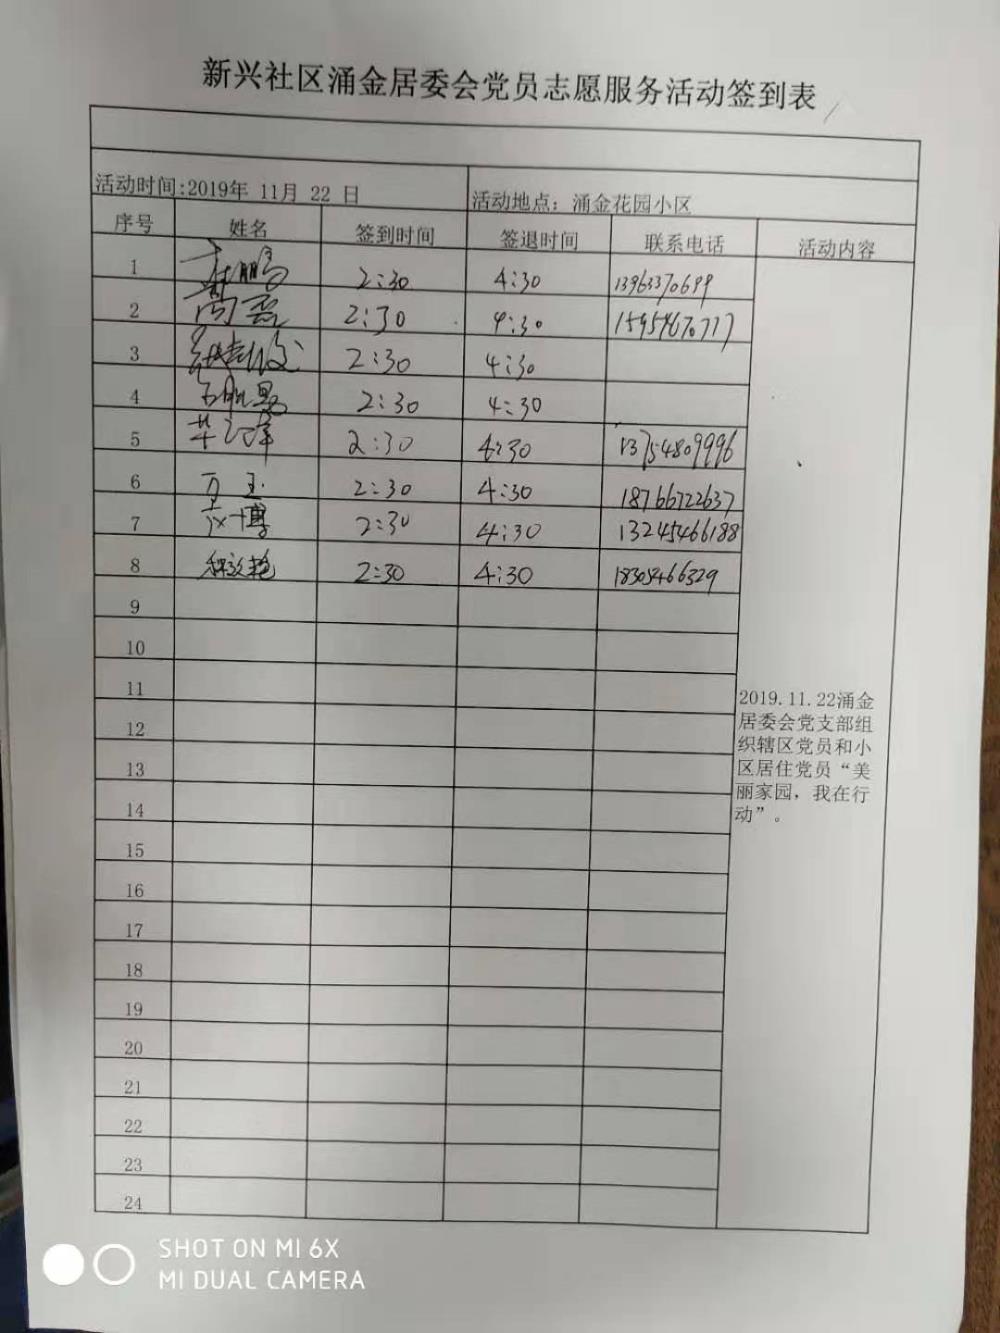 新兴社区涌金居委会党员志愿服务活动签到表
活动时间:2019年 11月 22 日 活动地点：涌金花园小区
序号 姓名 签到时间 签退时间 联系电话 活动内容
1 2:30 4:30 13963370699
2 尚磊 2:30 4:30 15954670717
3 2:30 4:30
4 2:30 4:30
5 2:30 4:30 13754809996
6 万玉 2:30 4:30 18766722637
7 博 2:30 4:30 13245466188
8 2:30 4:30 18305466329
9
10
11
12
13
14
15
16
17
18
19
20
21
22
23
24
2019.11.22涌金
居委会党支部组
织辖区党员和小
区居住党员“美
丽家园，我在行
动”。
SHOT ON MI 6X
MI DUAL CAMERA